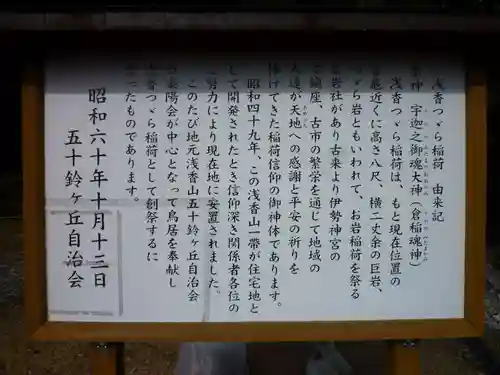 浅香つゝら稲荷　由来記
祭神　宇迦之御魂大神（倉稲魂神）
浅香つゝら稲荷は、もと現在位置の
近くに高さ八尺、横二丈余の巨岩、
ら岩ともいわれて、お岩稲荷を祭る
岩社があり古来より伊勢神宮の
鎮座、古市の繁栄を通じて地域の
人達が天地への感謝と平安の祈りを
捧げてきた稲荷信仰の御神体であります。
昭和四十九年、この浅香山一帯が住宅地と
して開発されたとき信仰深き関係者各位の
努力により現在地に安置されました。
このたび地元浅香山五十鈴ヶ丘自治会
陽会が中心となって鳥居を奉献し
つゝら稲荷として創祭するに
ったものであります。
昭和六十年十月十三日
五十鈴ヶ丘自治会